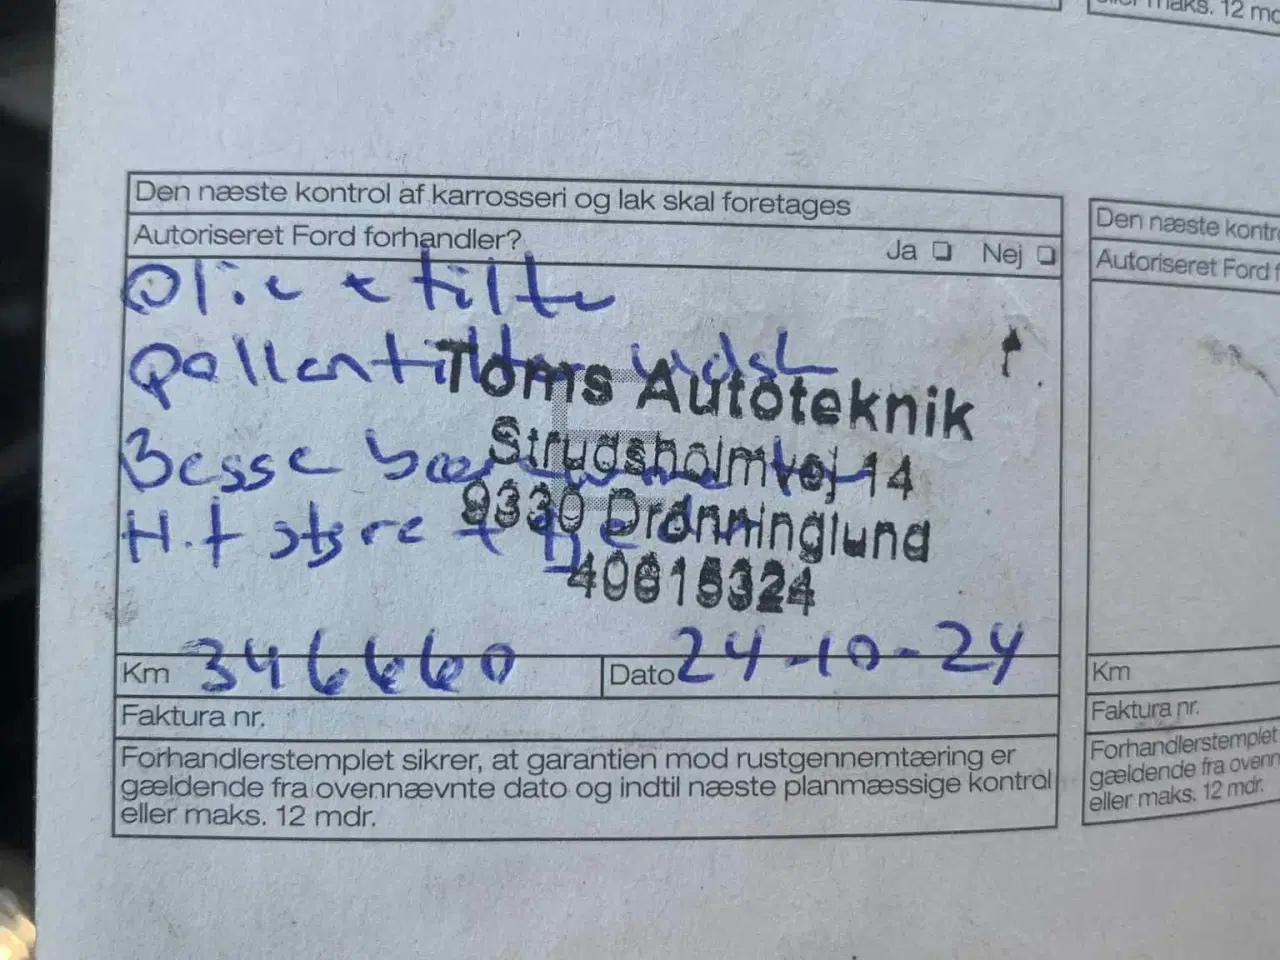 maks. 12
Den næste kontrol af karrosseri og lak skal foretages
Autoriseret Ford forhandler?
Ja ❏ Nej ❏
Olie + filter
pollenfilter
Toms Autoteknik
Strudsholmvej 14
9330 Dronninglund
40615324
H.f store +
Km 346660
Dato 24-10-24
Faktura nr.
Forhandlerstemplet sikrer, at garantien mod rustgennemtæring er
gældende fra ovennævnte dato og indtil næste planmæssige kontrol
eller maks. 12 mdr.
Den næste kontr
Autoriseret Ford f
Km
Faktura nr.
Forhandlerstemplet
gældende fra ovenn
eller maks. 12 mdr.